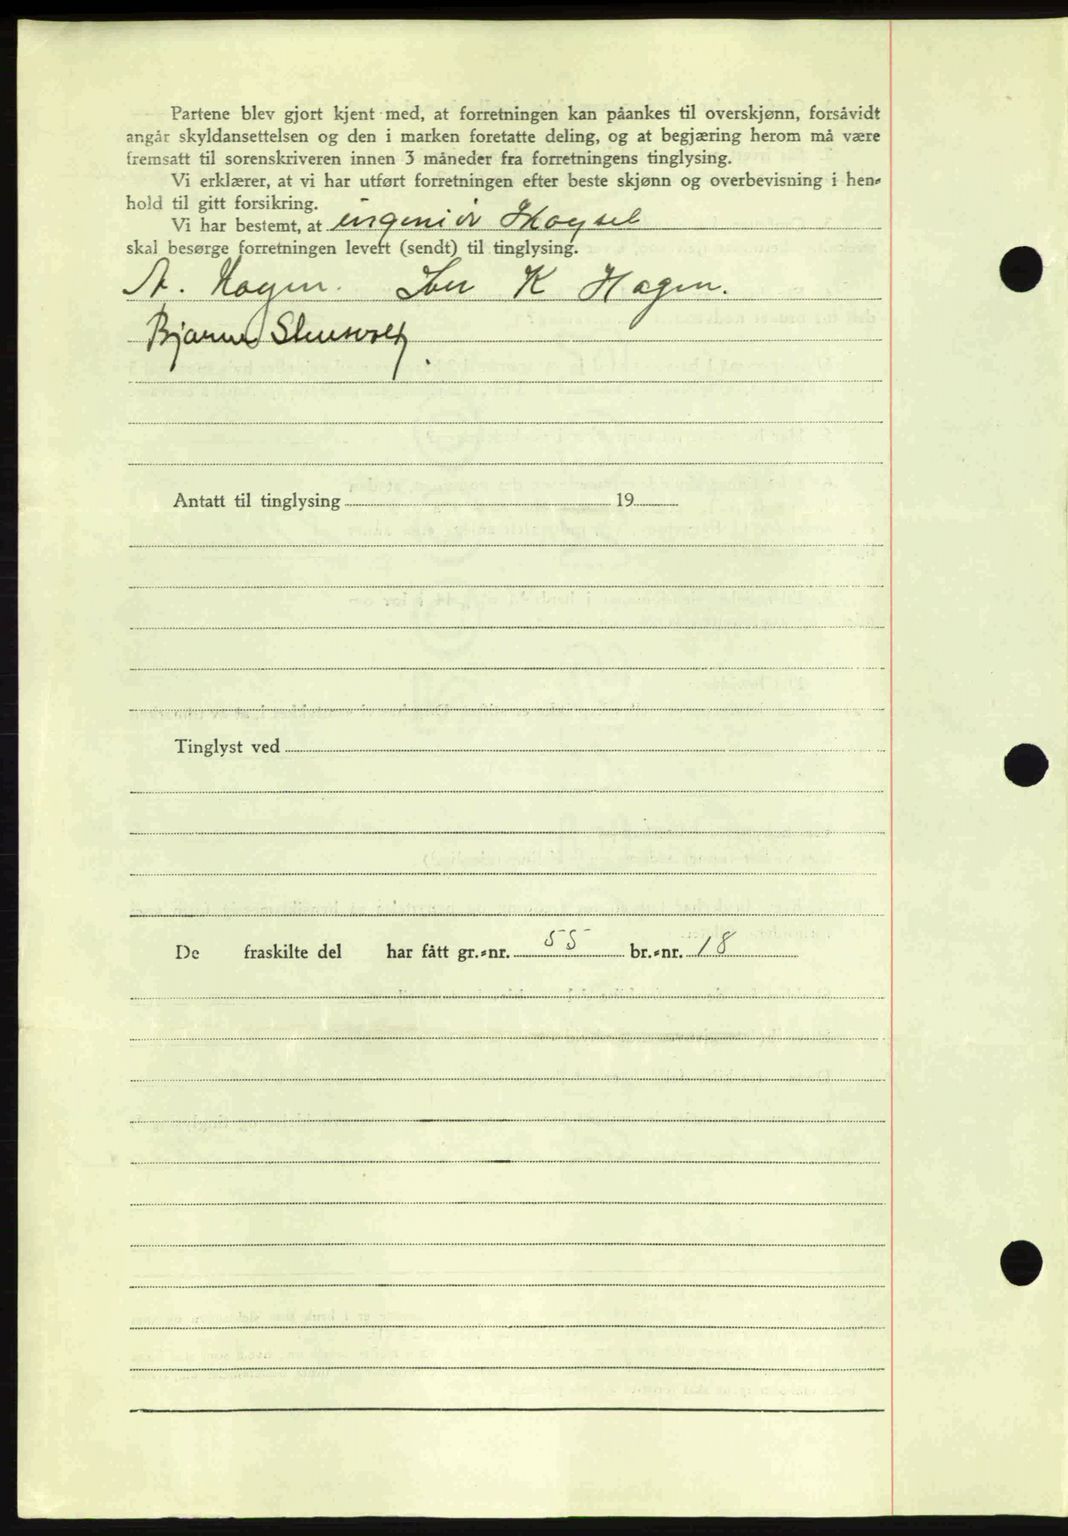 Partene blev gjort kjent med, at forretningen kan påankes til overskjønn, forsåvidt
angår skyldansettelsen og den i marken foretatte deling, og at begjæring herom må være
fremsatt til sorenskriveren innen 3 måneder fra forretningens tinglysing.
Vi erklærer, at vi har utført forretningen efter beste skjønn og overbevisning i hen-
hold til gitt forsikring.
Vi har bestemt, at ingeniør
skal besørge forretningen levert (sendt) til tinglysing.
A. Hagen. Iver K Hagen.
Bjarne
Antatt til tinglysing 19
Tinglyst ved
De fraskilte del har fått gr.-nr. 55 br.-nr. 18